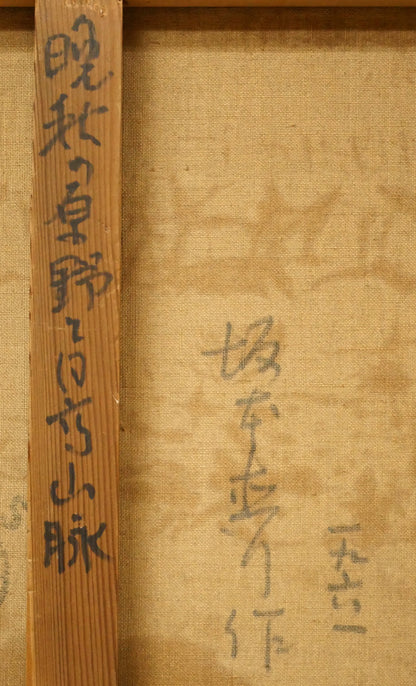 晩秋の原野と日高山脈
坂本直行作
一九六一